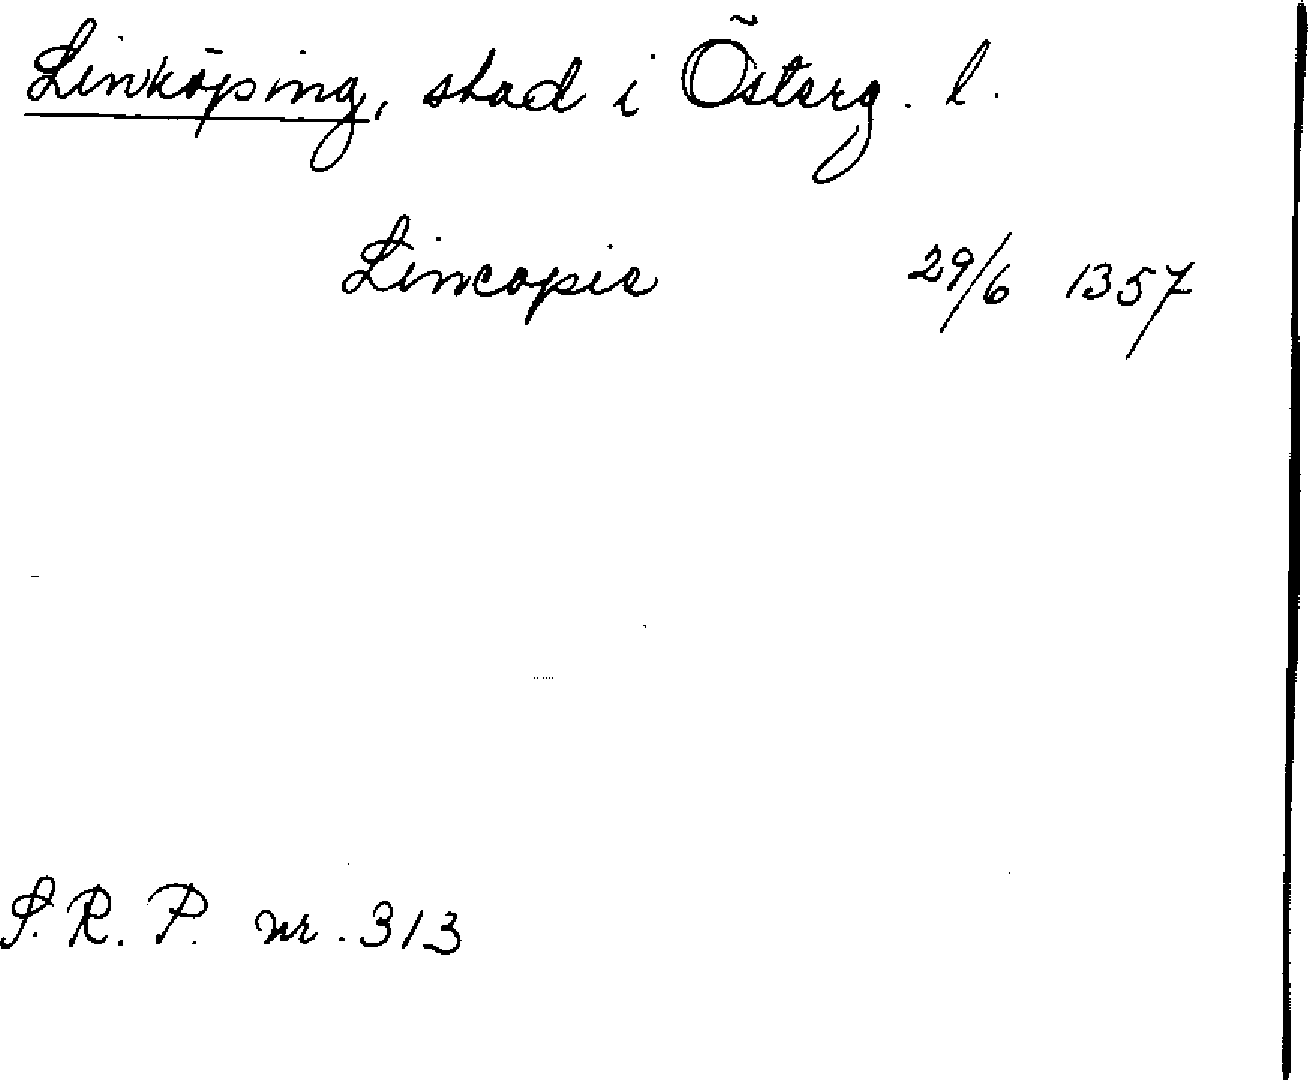 Linköping, stad i Österg. l.
Lincopie 29/6 1357
S.R.P. nr. 313